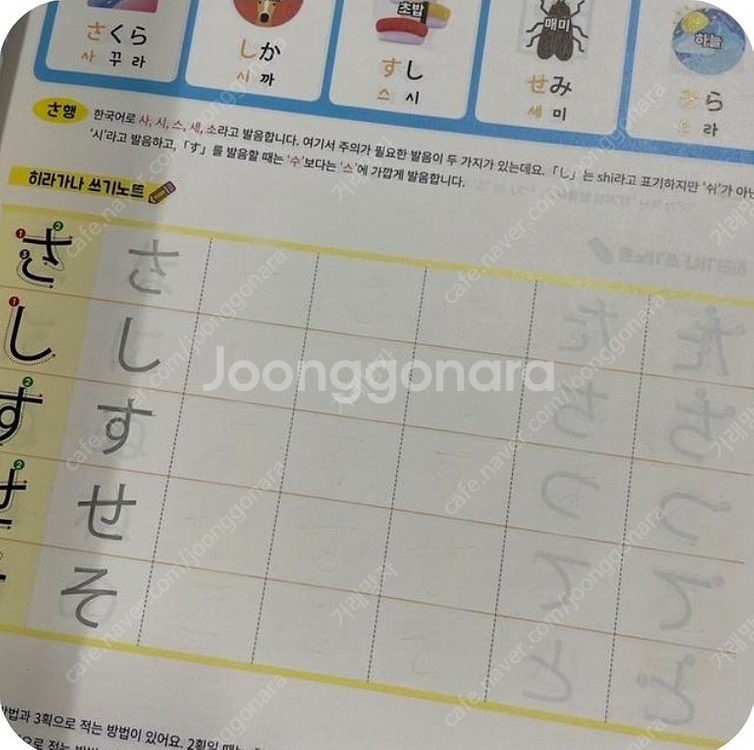 さくら
사 꾸 라
しか
시 까
초밥
すし
스 시
매미
せみ
세 미
하늘
ら
라
さ행
한국어로 사, 시, 스, 세, 소라고 발음합니다. 여기서 주의가 필요한 발음이 두 가지가 있는데요. 「し」는 shi라고 표기하지만 '쉬'가 아닌
'시'라고 발음하고, 「す」를 발음할 때는 '수'보다는 '스'에 가깝게 발음합니다.
히라가나 쓰기노트
さ さ
し し
す す
せ せ
そ
Joonggonara
방법과 3획으로 적는 방법이 있어요. 2획일 때는
으로 적는 방법